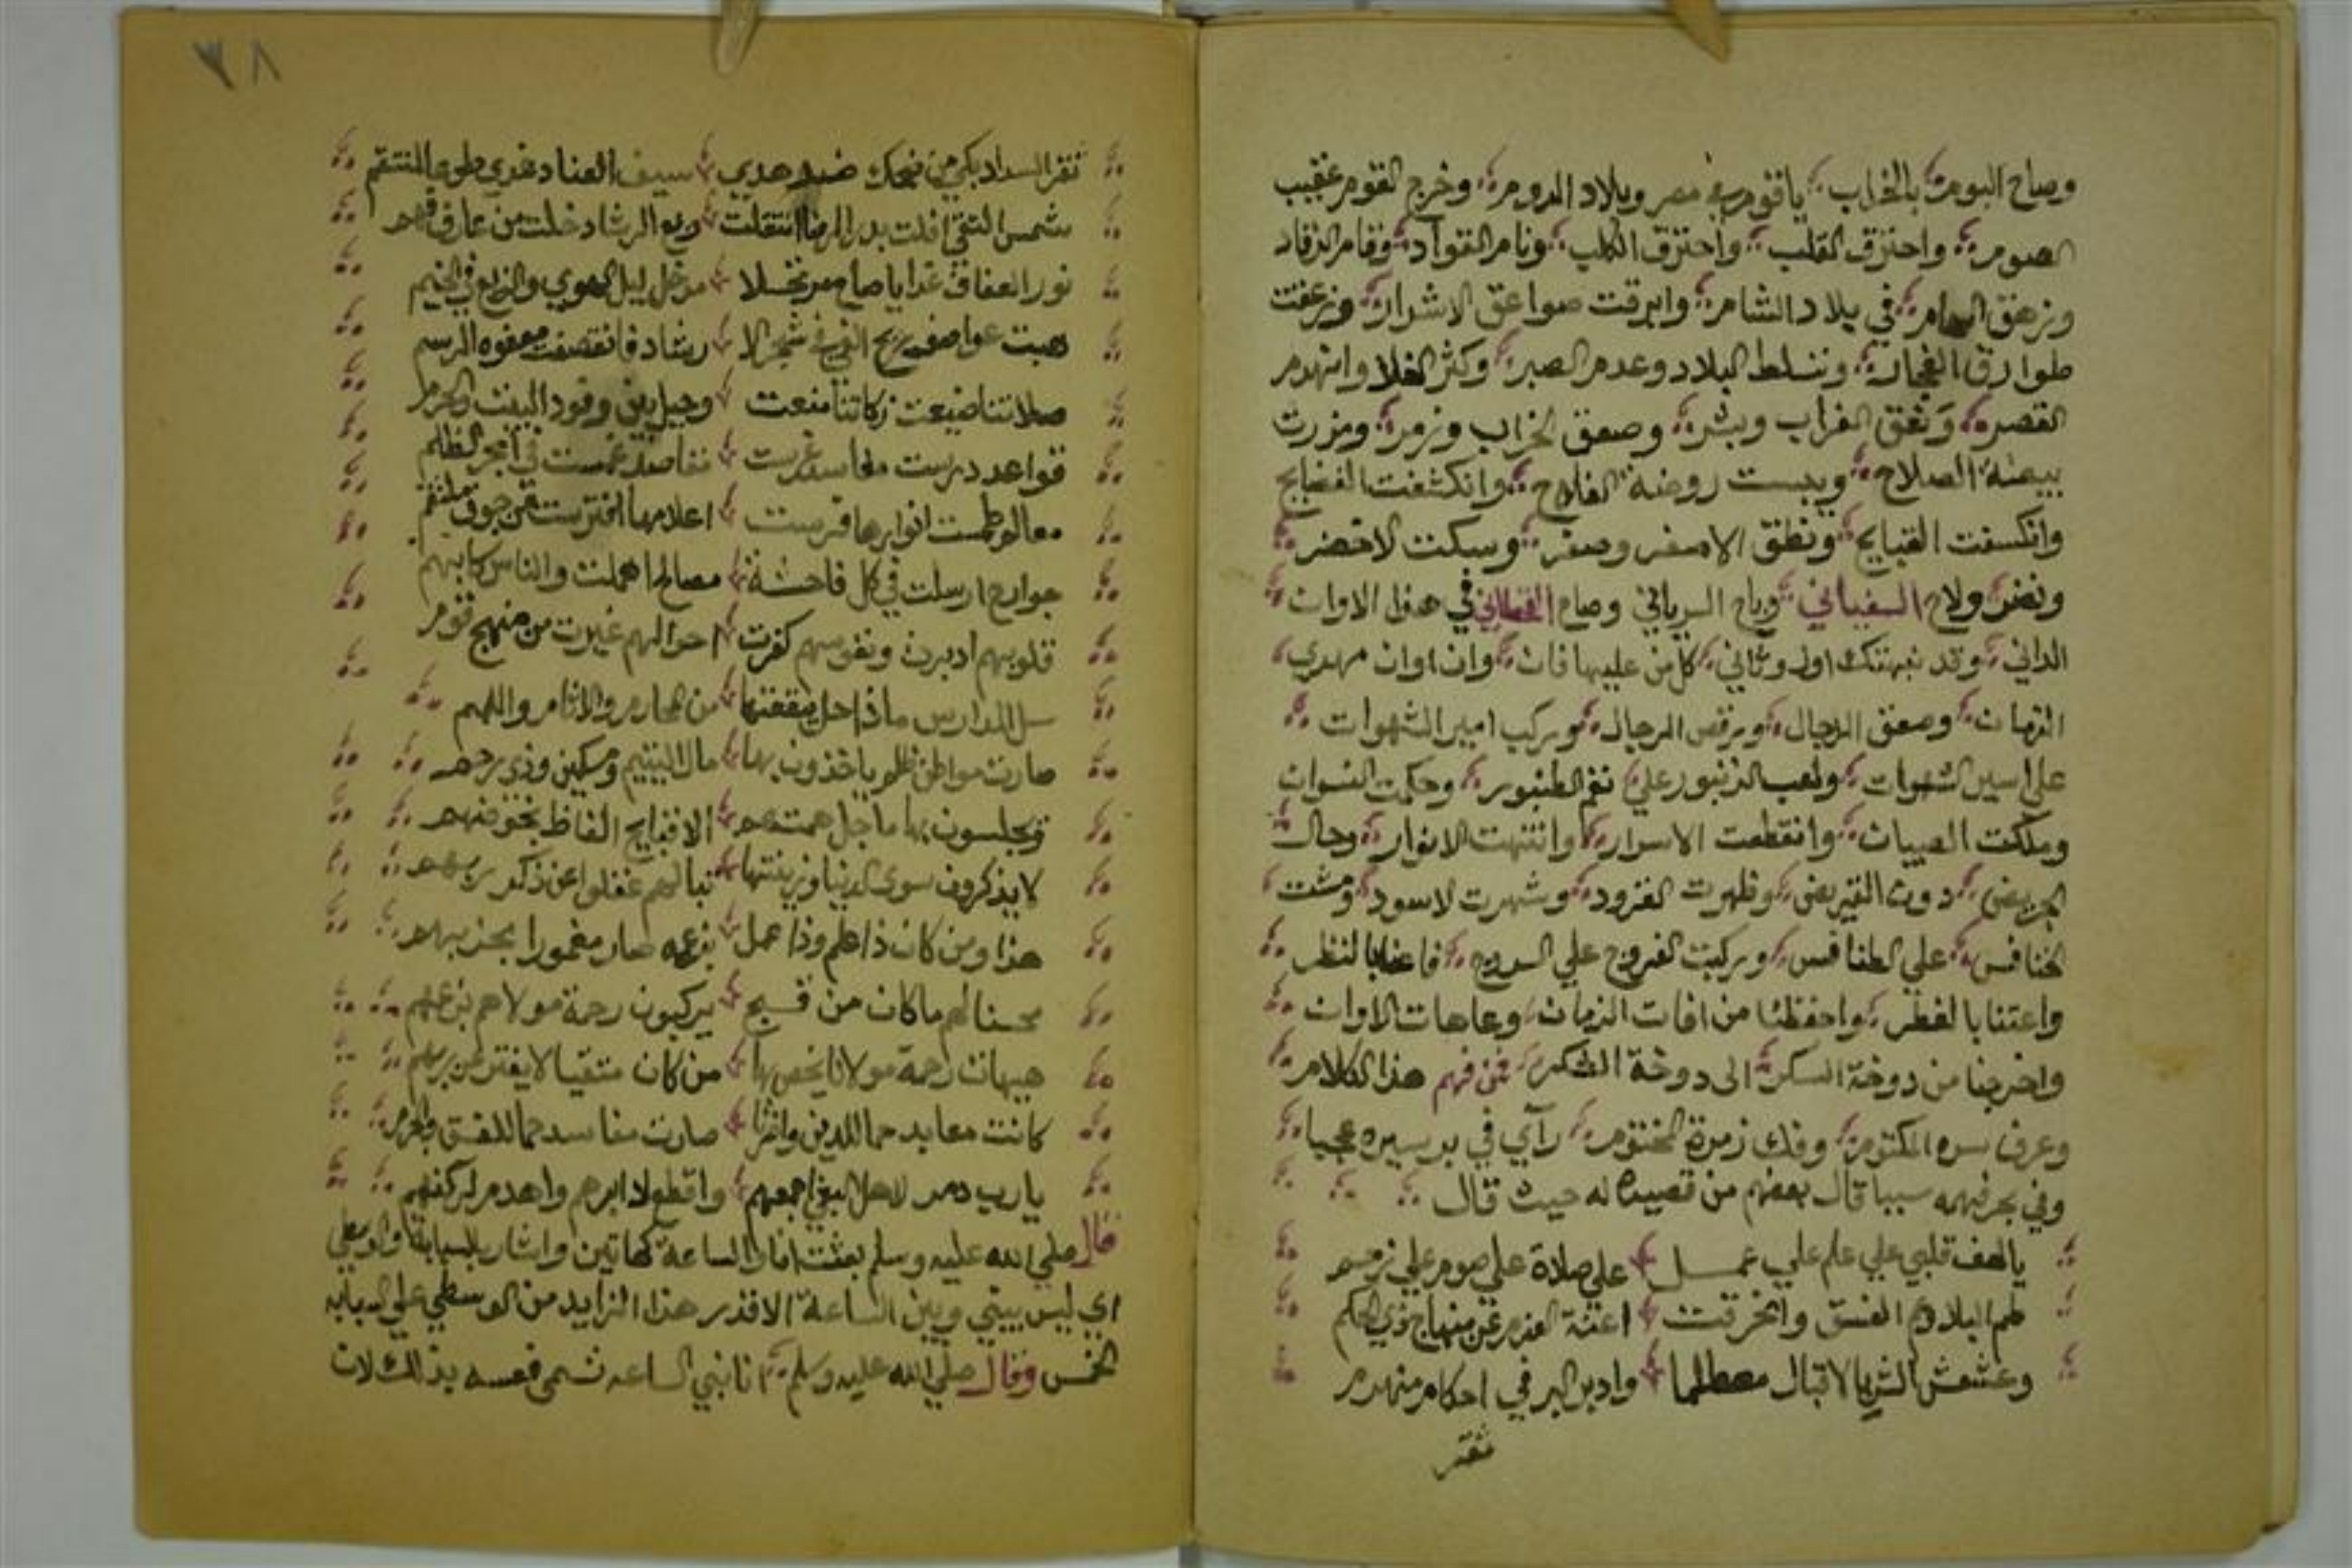 وصاح البوم بالخراب يا قوم في مصر وبلاد الروم وخرج القوم عقيب
الصوم واحترق القلب واحترق الكلب ونام الفواد وقام الرقاد
وزهق في بلاد الشام وابرقت صواعق الاشرار وزعقت
طوارق الفجار وتسلط البلاد وعدم الصبر وكثر الغلا وانهدم
القصر ونعق الغراب وبشر وصعق الخراب وزمر ومزرت
بيضة الصلاح ويبست روضة الفلاح وانكشفت الفضايح
وانكسفت القبايح ونطق الاصفر وصفر وسكت الاخضر
ونضر ولاح السفياني وباح السرياني وصاح في هذا الاوان
الداني وقد نبهتك اول وثاني كل من عليها فان وان اوان مهدي
الزمان وصعق الدجال ورقص الرجال وركب امير الشهوات
على اسير الشهوات ولعب الزنبور علي نغم الطنبور وحكمت النسوان
وملكت الصبيان وانقطعت الاسرار وانتهت الانوار وحال
الجريض دون القريض وظهرت القرود وشهرت الاسود ومشت
الخنافس علي الطنافس وركبت الفروج علي السروج بالنظر
واعتنا بالفطر واحفظنا من افات الزمان وعاهات الاوان
واخرجنا من دوخة السكر الى دوحة الشكر فمن فهم هذا الكلام
وعرف سره المكتوم وفك زمرة المختوم رآي في بر سيره عجبا
وفي بحر فهمه سببا قال بعضهم من قصيدة له حيث قال
يا لهف قلبي علي علم علي عمل علي صلاة علي صوم علي
طم البلا وهم الفسق وانخرقت اعنة العزم عن منهاج ذي الحكم
وعشعش الشر بالاقبال مصطلما وادبر البر في احكام منهدم
ثغر
٣٨
ثغر السداد بكي من ضحك ضد هدي سيف العناد غدي طوعا لمنتقم
شمس التقي افلت بدر الرضا انتقلت ربع الرشاد خلت من عارف فهم
نور العفاف غدا يا صاح مرتحلا مذ حل ليل الهوي في الخيم
هبت عواصف ريح الغي في شجر الا رشاد فانقصفت الرسم
صلاتنا ضيعت زكاتنا منعت وحيل بين وفود البيت والحرم
قواعد درست مفاسد غرست مقاصد غمست في ابحر الظلم
معالم طمست انوارها اعلامها افترست من جوف ملتقم
جوارح ارسلت في كل فاحشة مصالح اهملت والناس كالبهم
قلوبهم ادبرت ونفوسهم كفرت احوالهم غيرت من منهج قوم
سل المدارس ماذا حل من المحارم والاثام واللمم
صارت مواطن ظلم ياخذون بها مال اليتيم ومسكين وذي رحم
ويجلسون بها ما جل همتهم الا قبايح الفاظ
لا يذكرون سوى الدنيا وزينتها تبا لهم غفلوا عن ذكر ربهم
هذا ومن كان ذا علم وذا عمل بزعمه صار مغمورا بحزبهم
محسنا لهم ما كان من قبح رحمة مولاهم بزعمهم
هيهات رحمة مولانا يخص بها من كان متقيا لا يفتر
كانت معابد صارت مفاسد للفسق والجرم
يا رب دمر لاهل البغي اجمعهم واقطع لدابرهم واهدم لركنهم
قال صلي الله عليه وسلم بعثت انا والساعة كهاتين واشار بالسبابة والوسطي
اي ليس بيني وبين الساعة الا قدر هذا الزايد من الوسطي علي السبابه
الخمس وقال صلي الله عليه وسلم انا نبي الساعه تسمى نفسه بذالك لان